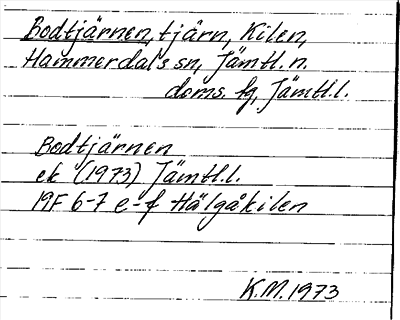 Bodtjärnen, tjärn, Kilen,
Hammerdal's sn, Jämtl. n.
doms. fg, Jämtl. l.
Bodtjärnen
ek (1973) Jämtl. l.
19F 6-7 e-f Hälgåkilen
K.M. 1973